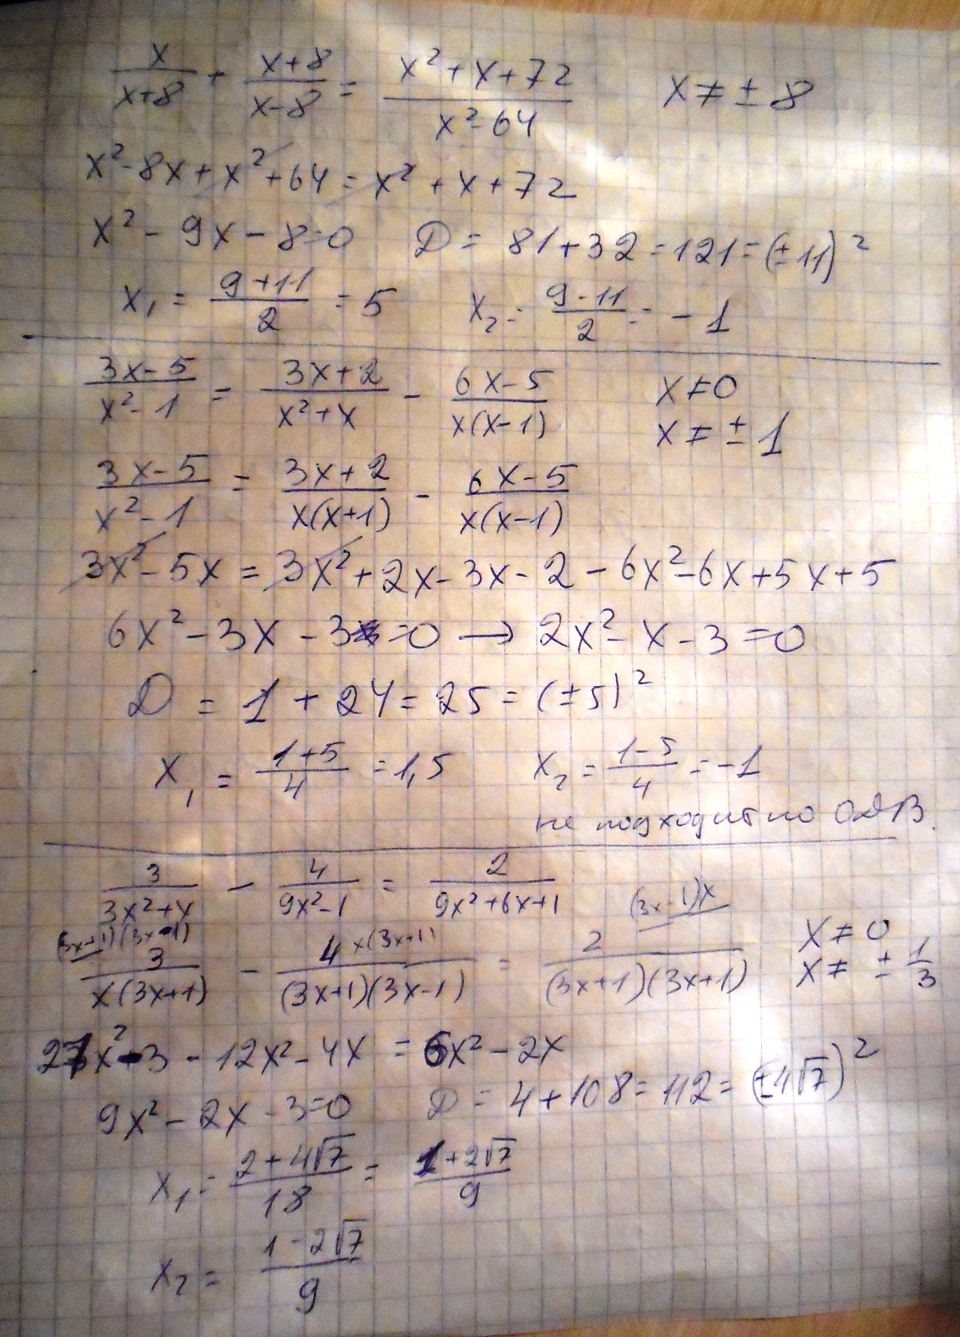 x/(x+8) + (x+8)/(x-8) = (x²+x+72)/(x²-64)   x ≠ ± 8
x²-8x+x²+64 = x²+x+72
x² - 9x - 8=0   D = 81+32=121=(±11)²
x₁ = (9+11)/2 = 5   x₂ = (9-11)/2 = -1
(3x-5)/(x²-1) = (3x+2)/(x²+x) - (6x-5)/(x(x-1))   x ≠ 0
x ≠ ± 1
(3x-5)/(x²-1) = (3x+2)/(x(x+1)) - (6x-5)/(x(x-1))
3x²-5x = 3x²+2x-3x-2-6x²-6x+5x+5
6x²-3x-3=0 → 2x²-x-3=0
D = 1 + 24 = 25 = (±5)²
x₁ = (1+5)/4 = 1,5   x₂ = (1-5)/4 = -1
не подходит по ОДВ.
3/(3x²+x) - 4/(9x²-1) = 2/(9x²+6x+1)
(3x+1)(3x-1)   x(3x+1)   (3x-1)x
3/(x(3x+1)) - 4/((3x+1)(3x-1)) = 2/((3x+1)(3x+1))   x ≠ 0
x ≠ ± 1/3
27x²-3-12x²-4x = 6x²-2x
9x²-2x-3=0   D = 4+108=112=(±4√7)²
x₁ = (2+4√7)/18 = (1+2√7)/9
x₂ = (1-2√7)/9